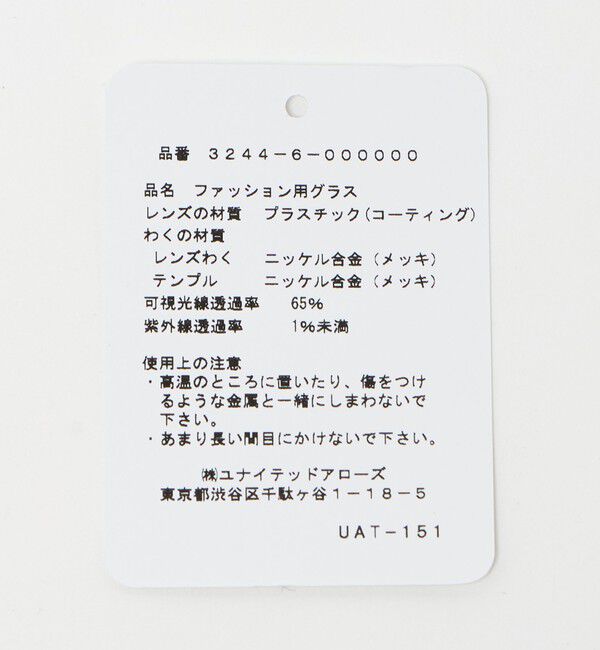 品番 3244-6-000000
品名 ファッション用グラス
レンズの材質 プラスチック(コーティング)
わくの材質
レンズわく ニッケル合金(メッキ)
テンプル ニッケル合金(メッキ)
可視光線透過率 65%
紫外線透過率 1%未満
使用上の注意
・高温のところに置いたり、傷をつけ
るような金属と一緒にしまわないで
下さい。
・あまり長い間目にかけないで下さい。
㈱ユナイテッドアローズ
東京都渋谷区千駄ヶ谷1-18-5
UAT-151